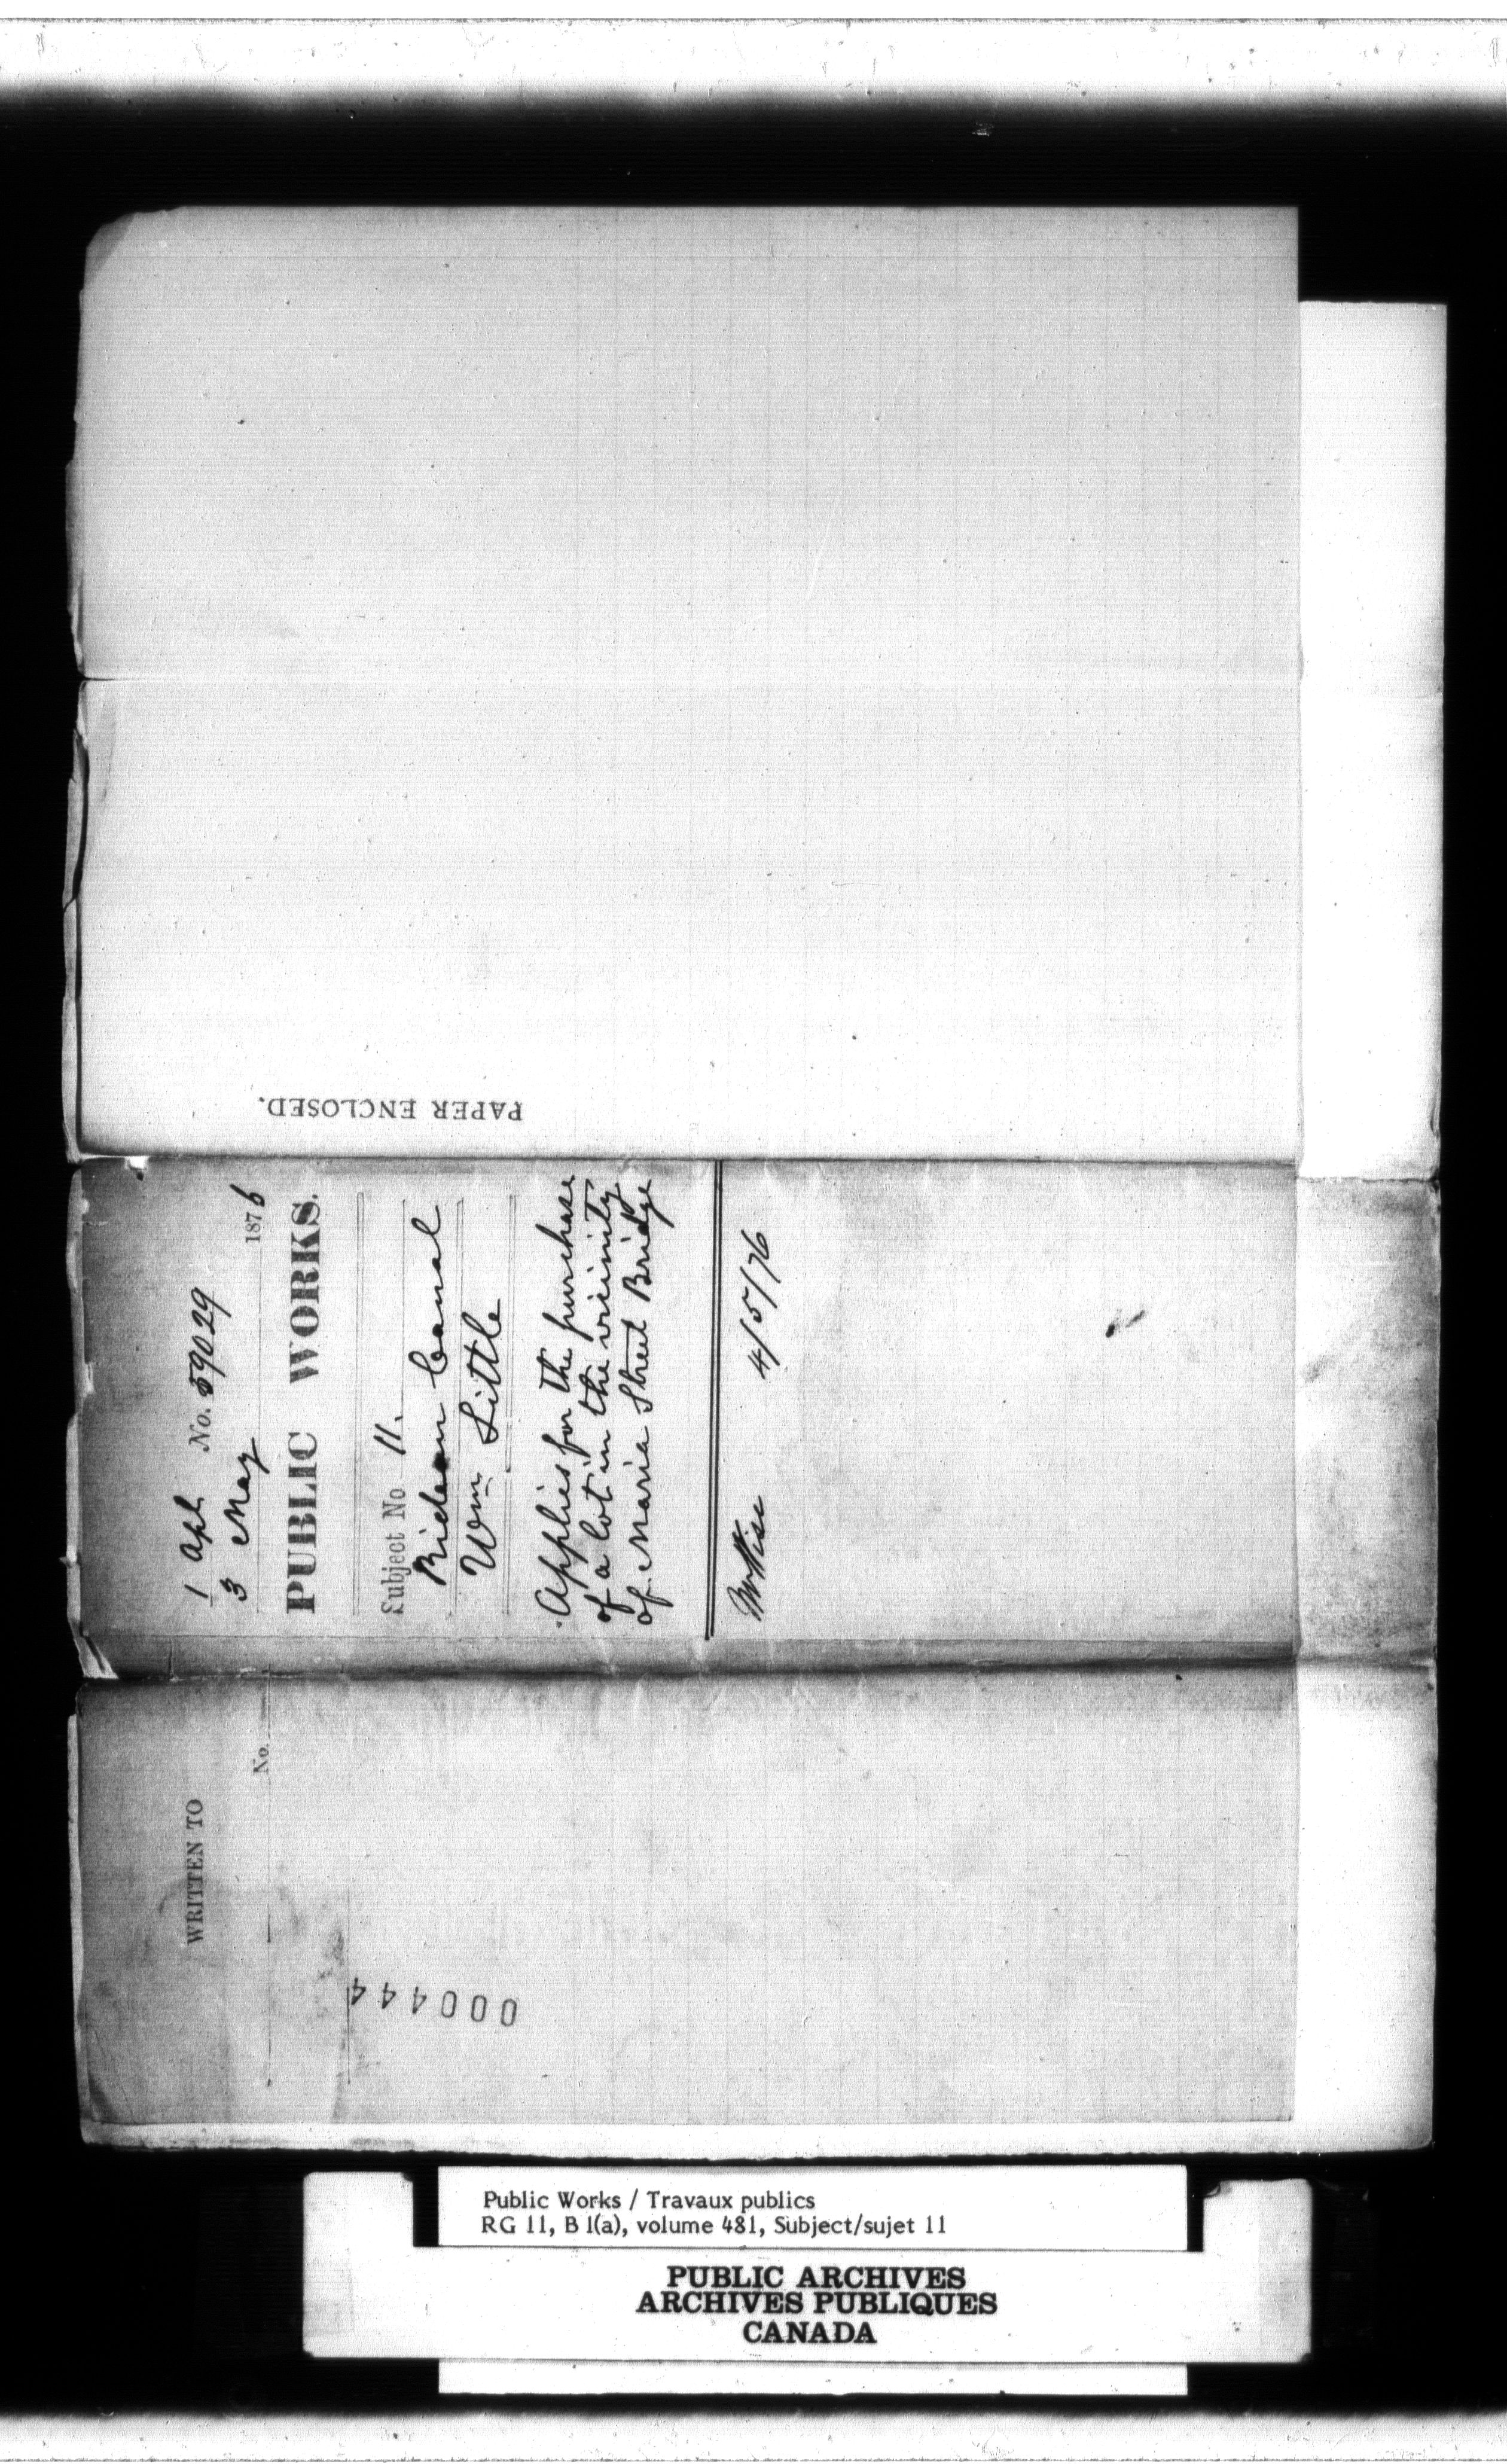 PAPER ENCLOSED.
1 Apl. No. 59029
3 May 1876
PUBLIC WORKS.
Subject No 11.
Rideau Canal
Wm Little
Applies for the purchase
of a lot in the vicinity
of Maria Street Bridge
4/5/76
WRITTEN TO
No.
000444
Public Works / Travaux publics
RG 11, B 1(a), volume 481, Subject/sujet 11
PUBLIC ARCHIVES
ARCHIVES PUBLIQUES
CANADA